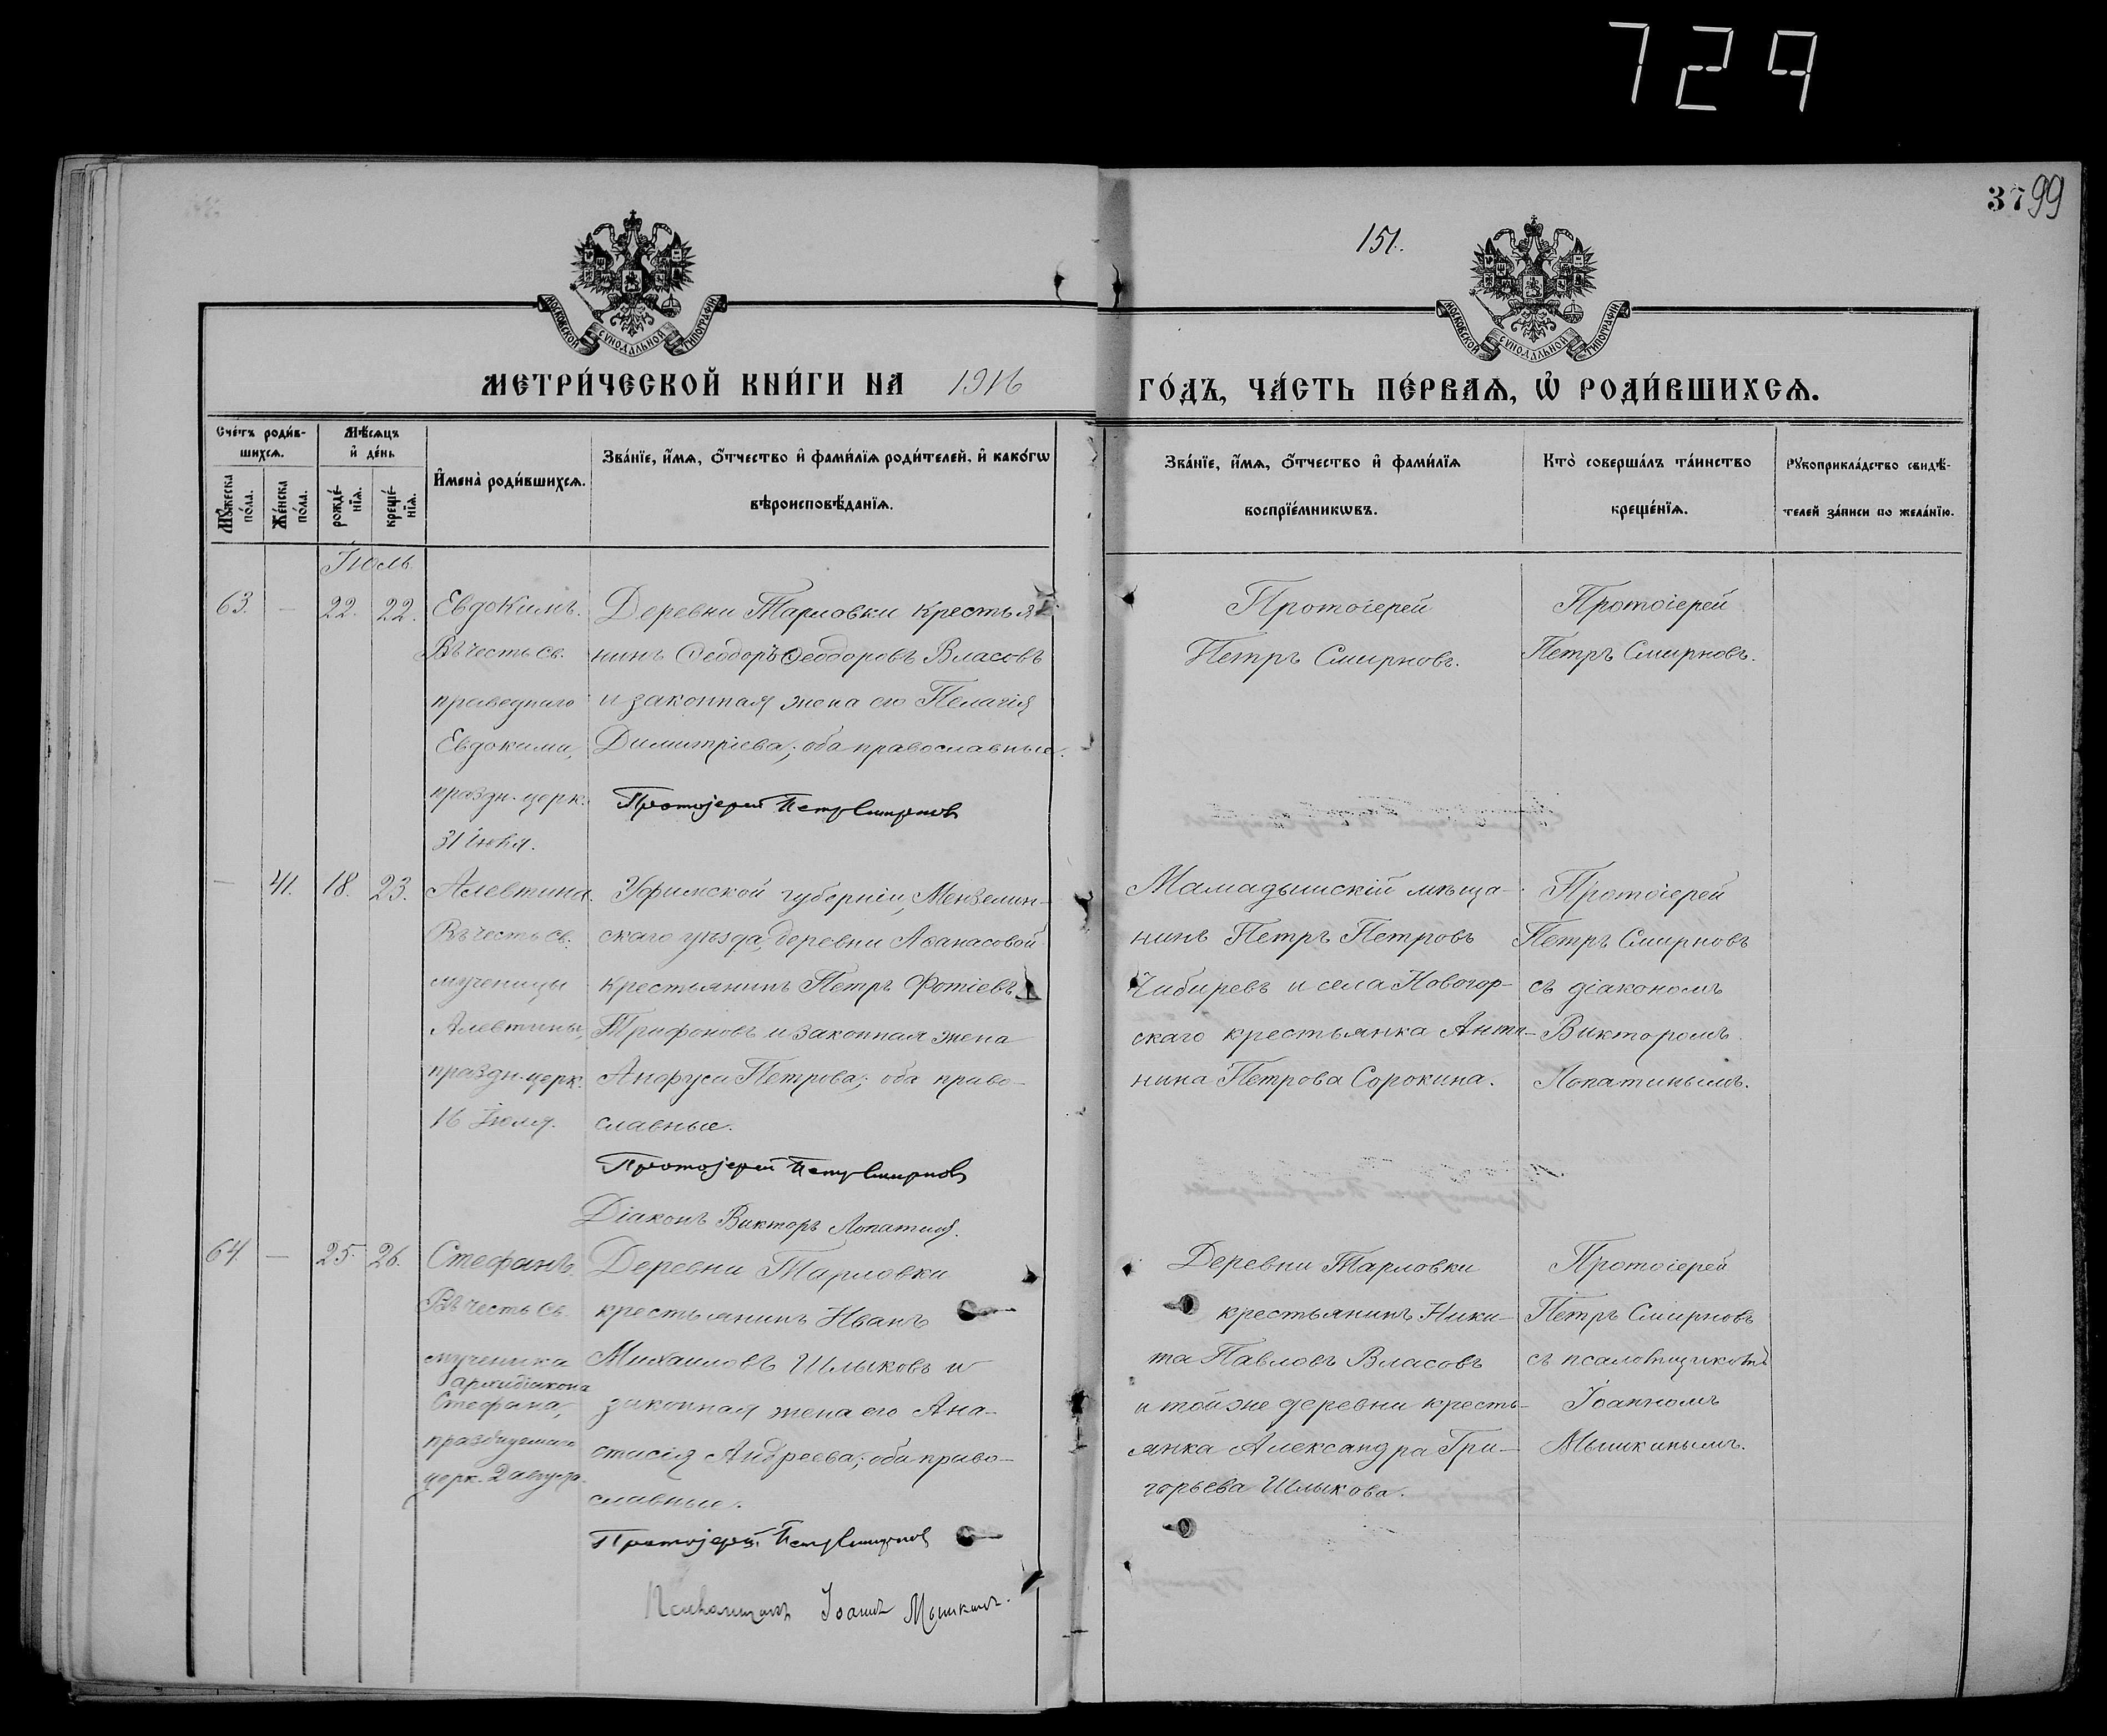 729
3799
151.
МОСКОВСКОЙ СѴНОДАЛЬНОЙ ТИПОГРАФІИ
МОСКОВСКОЙ СѴНОДАЛЬНОЙ ТИПОГРАФІИ
МЕТРИ́ЧЕСКОЙ КНИ́ГИ НА 1916 ГО́ДЪ, ЧА́СТЬ ПЕ́РВАѦ, Ѡ҆ РОДИ́ВШИХСѦ.
Сче́тъ роди́в-
шихсѧ.
Мꙋ́жеска по́ла.
Же́нска по́ла.
Мѣ́сѧцъ
и҆ де́нь
рожде́-
нїѧ.
креще́-
нїѧ.
И҆мена̀ роди́вшихсѧ.
Зва́нїе, и҆́мѧ, ѻ҆́тчество и҆ фами́лїѧ роди́телей, и҆ како́гѡ
вѣроисповѣ́данїѧ.
Зва́нїе, и҆́мѧ, ѻ҆́тчество и҆ фами́лїѧ
воспрїе́мникѡвъ.
Кто̀ соверша́лъ та́инство
креще́нїѧ.
Рꙋкоприкла́дство свидѣ́-
телей за́писи по жела́нїю.
Іюль
63. — 22. 22.
Евдокимъ.
Въ честь св.
праведнаго
Евдокима,
праздн. церк.
31 іюля.
Деревни Тарловки крестья-
нинъ Ѳеодоръ Ѳеодоровъ Власовъ
и законная жена его Пелагія
Димитріева; оба православные.
Протоіерей Петръ Смирновъ
Протоіерей
Петръ Смирновъ.
Протоіерей
Петръ Смирновъ.
— 41. 18. 23.
Алевтина.
Въ честь св.
мученицы
Алевтины,
праздн. церк.
16 Іюля.
Уфимской губерніи, Мензелин-
скаго уѣзда, деревни Аѳанасовой
крестьянинъ Петръ Фотіевъ
Трифоновъ и законная жена
Анфуса Петрова; оба право-
славные.
Протоіерей Петръ Смирновъ
Діаконъ Викторъ Лопатинъ.
Мамадышскій мѣща-
нинъ Петръ Петровъ
Чибиревъ и села Новогор-
скаго крестьянка Анто-
нина Петрова Сорокина.
Протоіерей
Петръ Смирновъ
съ діакономъ
Викторомъ
Лопатинымъ.
64 — 25. 26.
Стефанъ.
Въ честь св.
мученика
архидіакона
Стефана,
празднуемаго
церк. 2 августа.
Деревни Тарловки
крестьянинъ Иванъ
Михаиловъ Шлыковъ и
законная жена его Ана-
стасія Андреева; оба право-
славные.
Протоіерей Петръ Смирновъ
Псаломщикъ Іоаннъ Мышкинъ.
Деревни Тарловки
крестьянинъ Ники-
та Павловъ Власовъ
и той же деревни кресть-
янка Александра Гри-
горьева Шлыкова.
Протоіерей
Петръ Смирновъ
съ псаломщикомъ
Іоанномъ
Мышкинымъ.